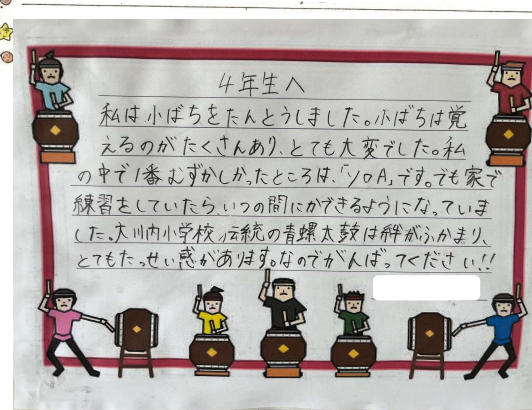 4年生へ
私は小ばちをたんとうしました。小ばちは覚
えるのがたくさんあり、とても大変でした。私
の中で1番むずかしかったところは、「ソロA」です。でも家で
練習をしていたら、いつの間にかできるようになっていま
した。大川内小学校伝統の青螺太鼓は絆がふかまり、
とてもたっせい感があります。なのでがんばってください!!